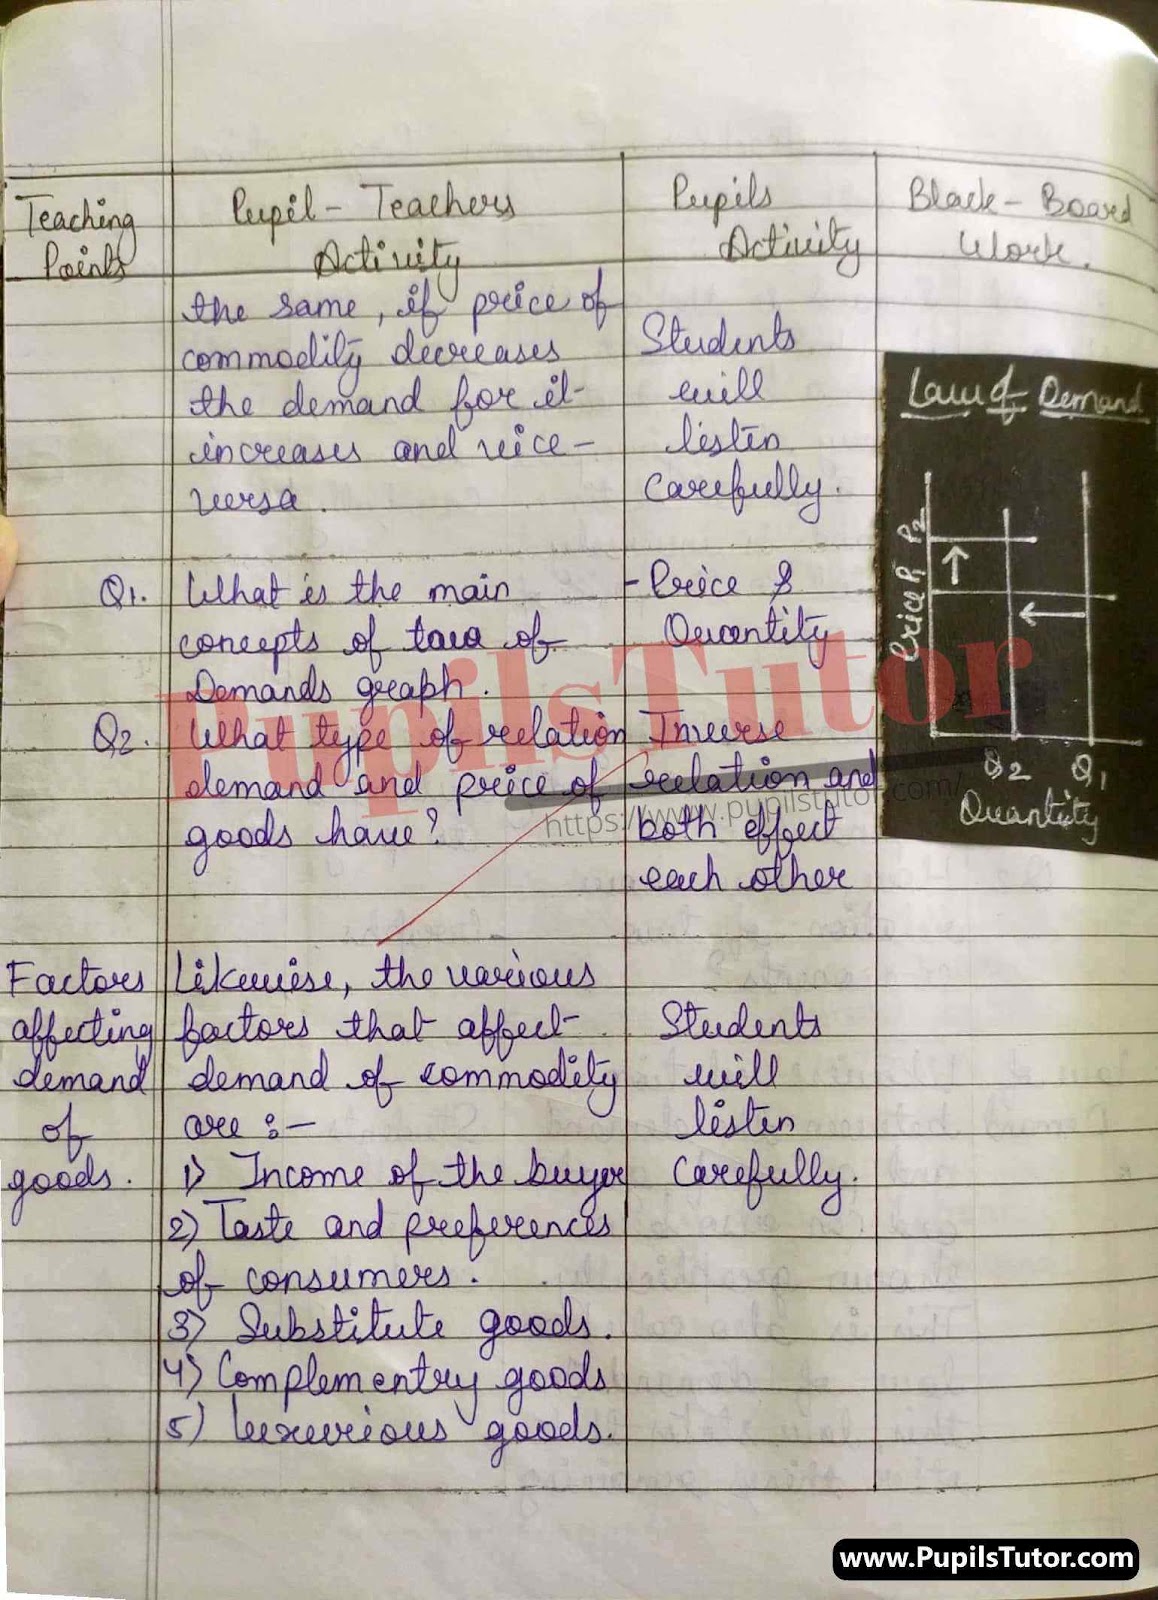 Teaching Points
Pupil - Teachers Activity
Pupils Activity
Black - Board Work.
the same, if price of
commodity decreases
the demand for it
increases and vice -
versa.
Students
will
listen
Carefully.
Law of Demand
Price P1 P2
Q2 Q1
Quantity
Q1. What is the main
concepts of law of
Demands graph.
- Price &
Quantity
Q2. What type of relation
demand and price of
goods have?
Inverse
relation and
both effect
each other
Factors
affecting
demand
of
goods.
Likewise, the various
factors that affect
demand of commodity
are :-
1) Income of the buyer
2) Taste and preferences
of consumers.
3) Substitute goods.
4) Complementry goods
5) Luxurious goods.
Students
will
listen
Carefully.
PupilsTutor
https://www.pupilstutor.com/
www.PupilsTutor.com